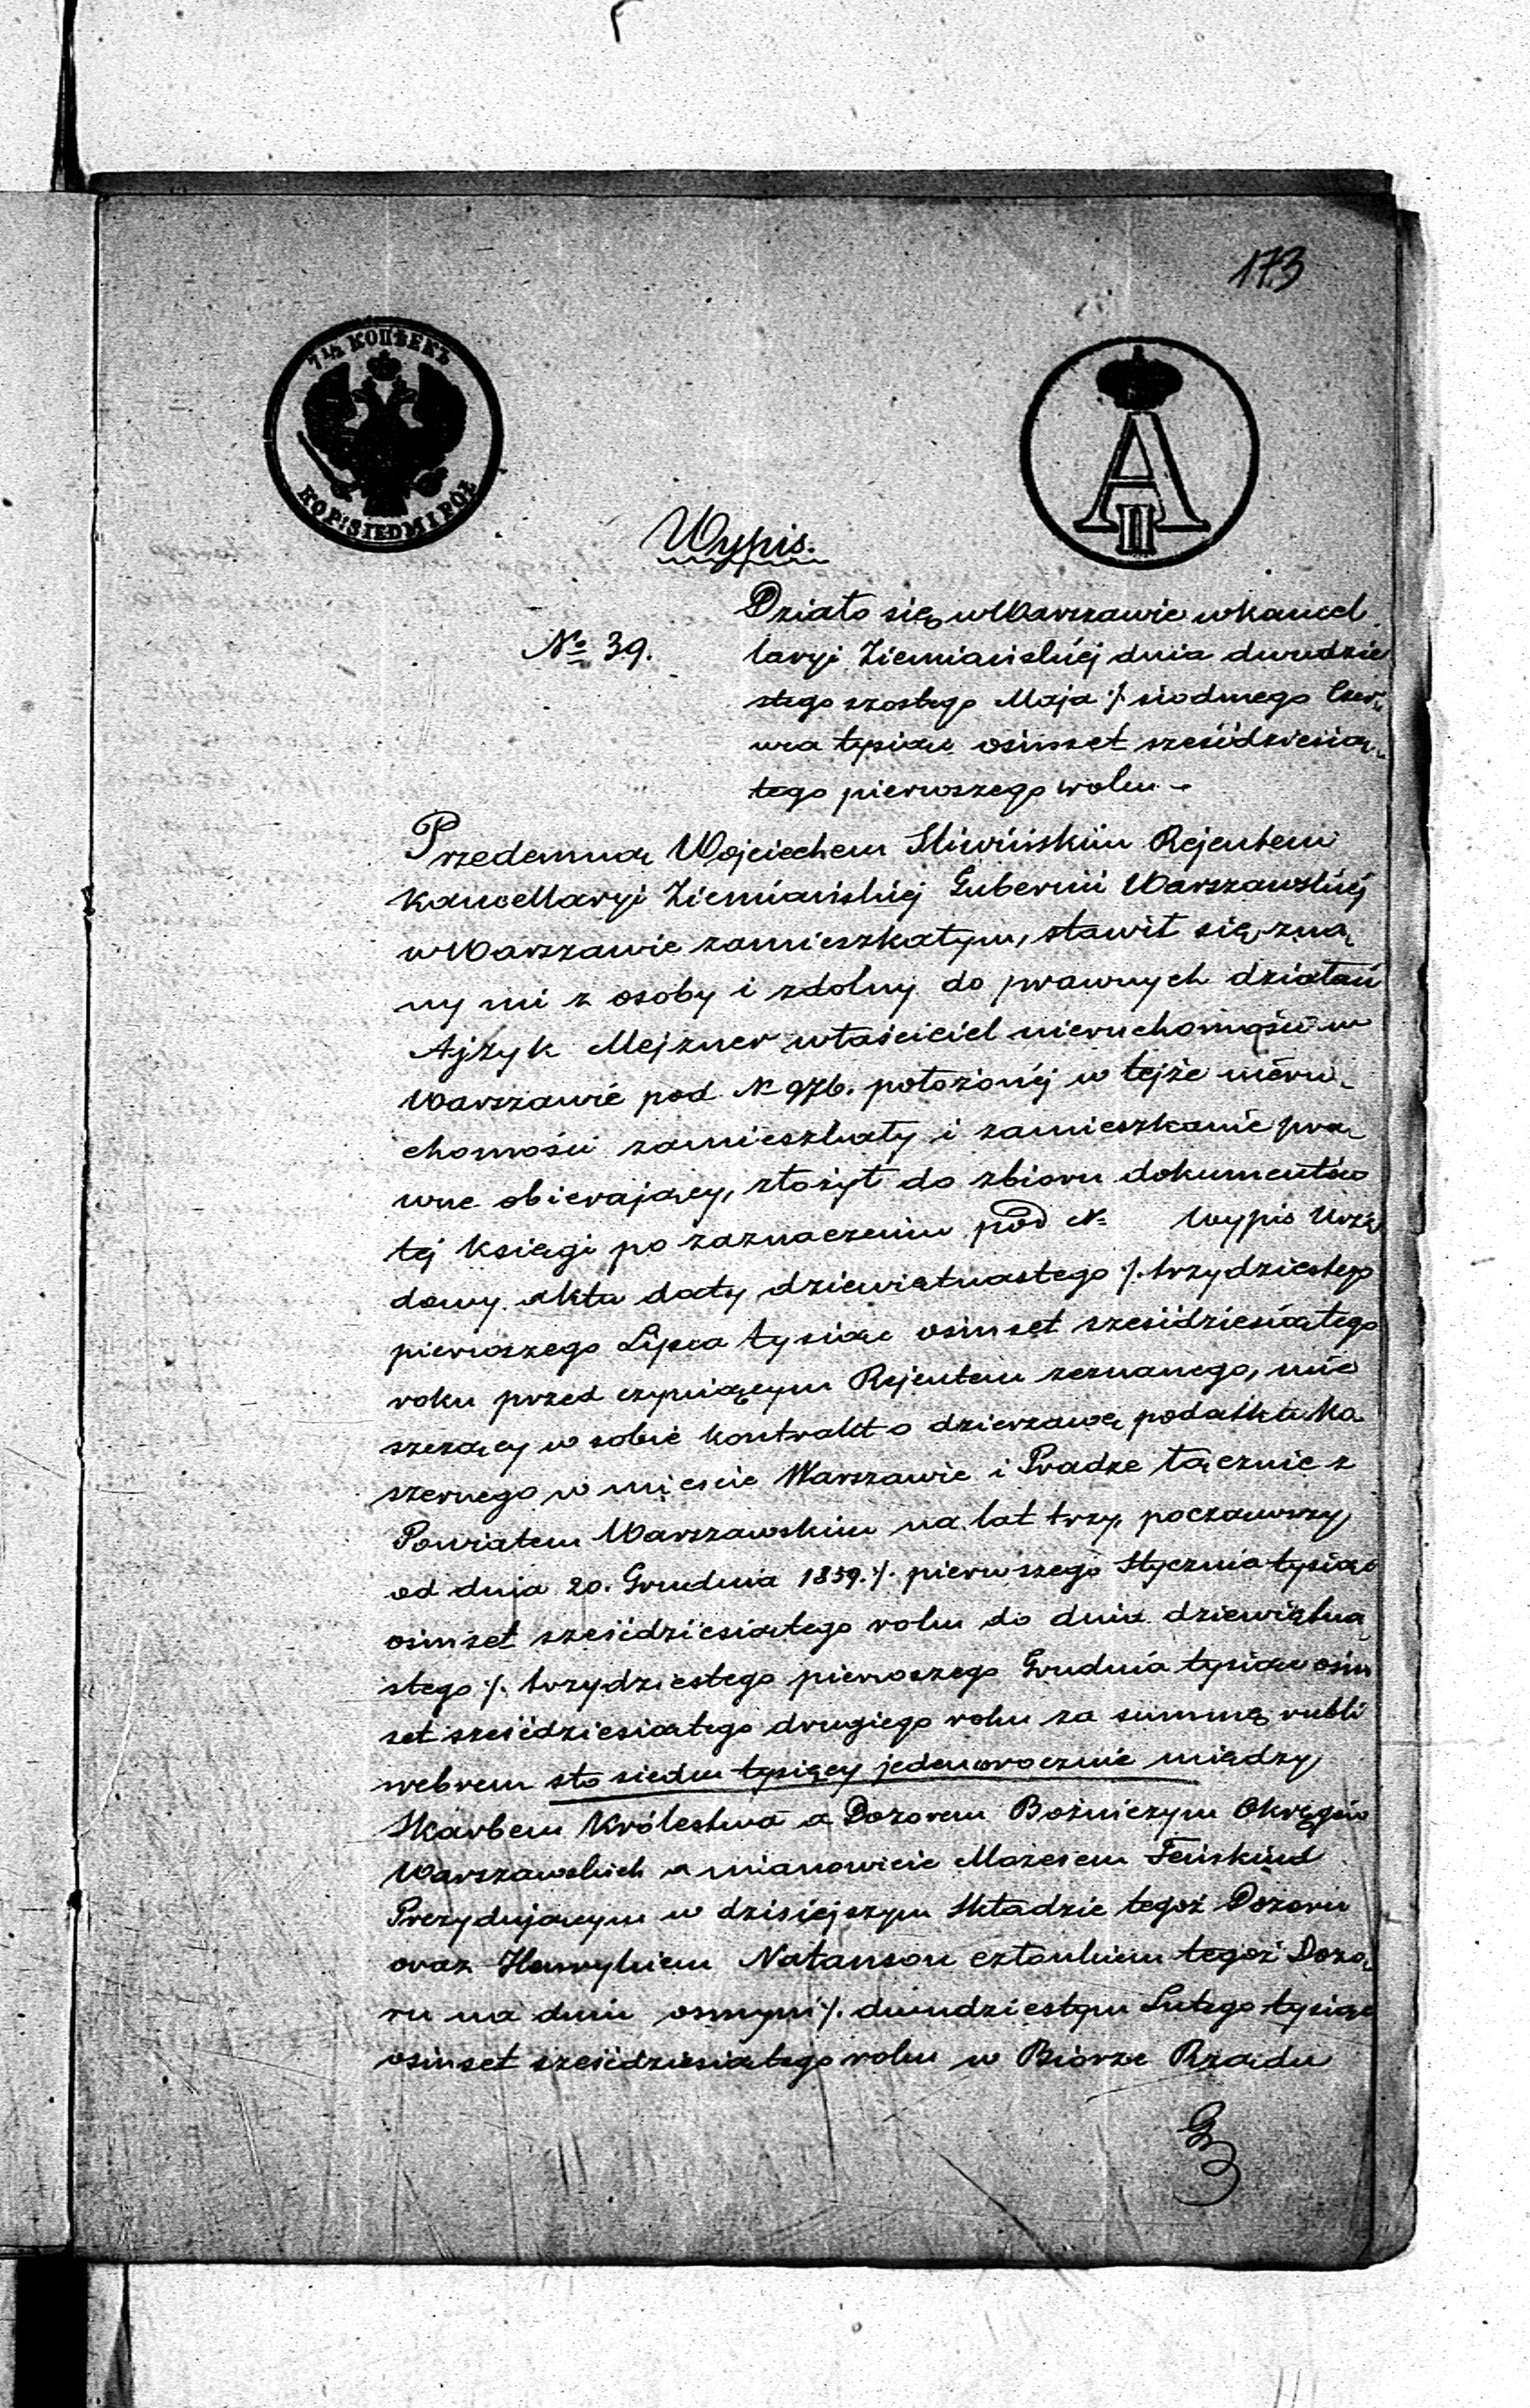 173
7 1/2 КОПѢЕКЪ
KOP: SIEDM I PÓŁ
A II
Wypis.
№ 39.
Działo się w Warszawie w kancel
laryi Ziemiańskiéj dnia dwudzie
stego szostego Maja ./. siodmego Czer
wca tysiąc osimset sześćdziesią
tego pierwszego roku -
Przedemną Wojciechem Sliwińskim Rejentem
Kancellaryi Ziemiańskiéj Gubernii Warszawskiéj
w Warszawie zamieszkałym, stawił się zna
ny mi z osoby i zdolny do prawnych działań
Ajzyk Mejzner właściciel nieruchomości w
Warszawie pod № 976. położonéj w tejże nieru
chomości zamieszkały i zamieszkanie pra
wne obierający, złożył do zbioru dokumentów
téj księgi po zaznaczeniu pod № Wypis Urzę
dowy aktu daty dziewiętnastego ./. trzydziestego
pierwszego Lipca tysiąc osimset sześćdziesiątego
roku przed czyniącym Rejentem zeznanego, mie
szczący w sobie kontrakt o dzierżawę podatku Ko
szernego w mieście Warszawie i Pradze łącznie z
Powiatem Warszawskim na lat trzy począwszy
od dnia 20. Grudnia 1859. ./. pierwszego Stycznia tysiąc
osimset sześćdziesiątego roku do dnia dziewiętna
stego ./. trzydziestego pierwszego Grudnia tysiąc osim
set sześćdziesiątego drugiego roku za summę rubli
srebrem sto siedm tysięcy jednorocznie między
Skarbem Królestwa a Dozorem Bożniczym Okręgów
Warszawskich a mianowicie Mozesem Feinkind
Prezydującym w dzisiejszym Składzie tegoż Dozoru
oraz Henrykiem Natanson członkiem tegoż Dozo
ru na dniu osmym ./. dwudziestym Lutego tysiąc
osimset sześćdziesiątego roku w Biórze Rządu